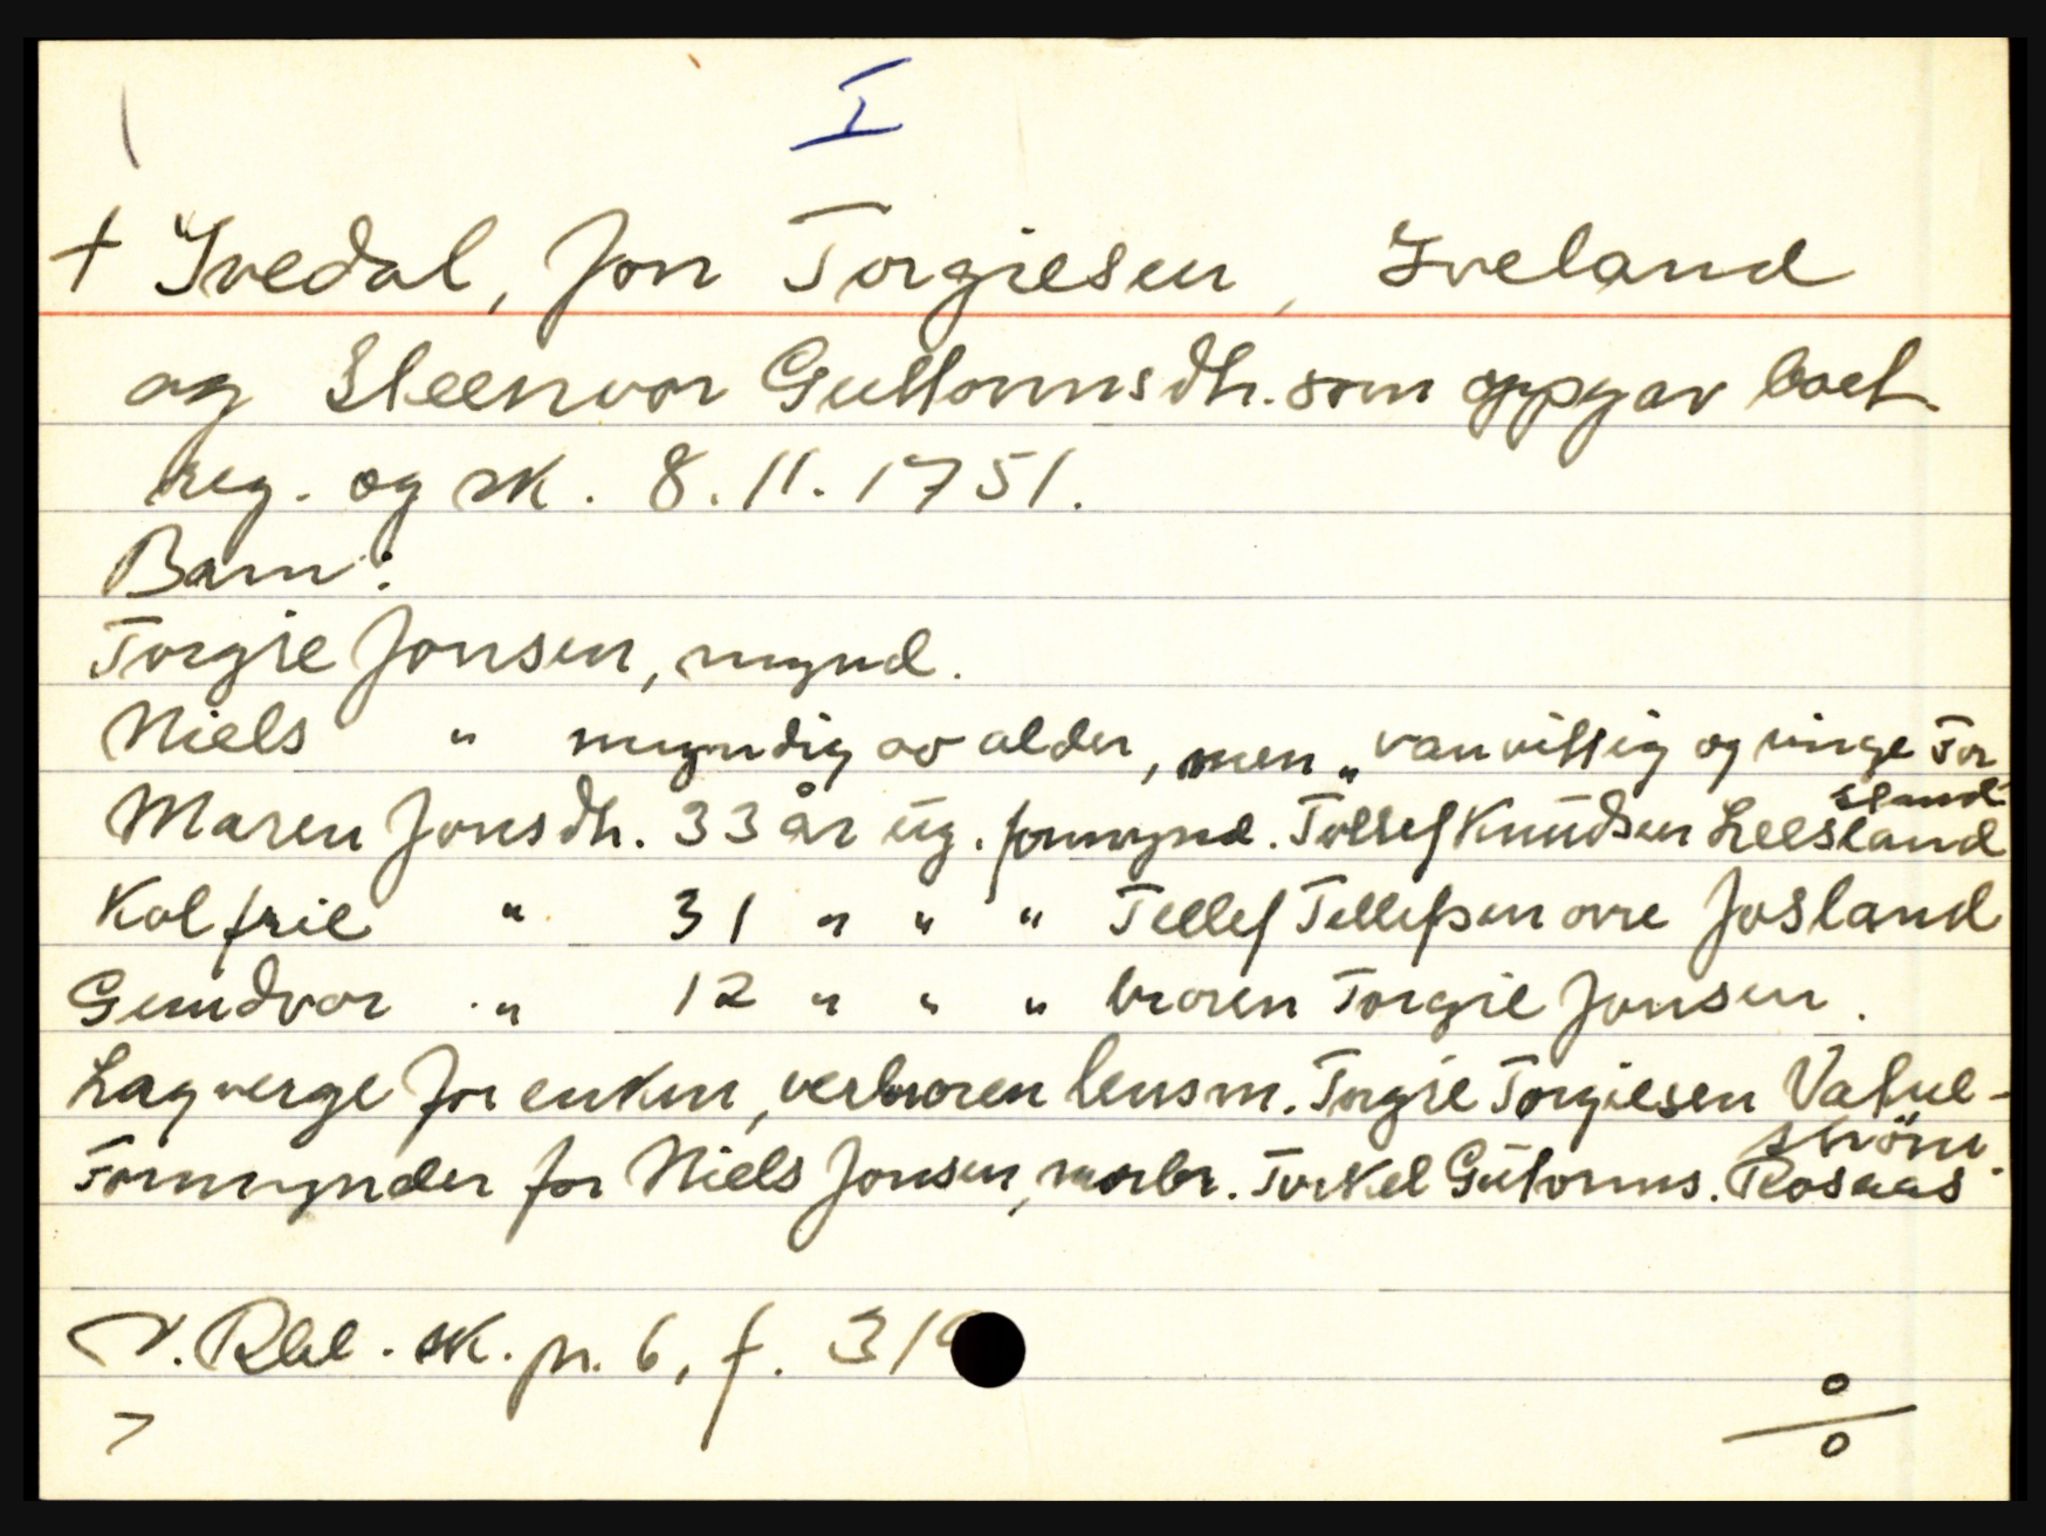 I
+ Ivedal, Jon Torgiesen, Iveland
og Steenvor Guttormsdtr. som oppgav boet.
reg. og sk. 8.11.1751.
Barn:
Torgie Jonsen, mynd.
Niels " myndig av alder, men „vanvittig og ringe For
stand"
Maren Jonsdtr. 33 år ug. formynd. Tollef Knudsen Leesland
Kolfrie " 31 " " " Tellef Tellefsen øvre Josland
Gundvor " 12 " " " broren Torgie Jonsen.
Lagverge for enken, verbroren lensm. Torgie Torgiesen Vatne-
strøm.
Formynder for Niels Jonsen, morbr. Torkel Gutorms. Rosaas
V. Rbl. sk. pr. 6, f. 31
÷